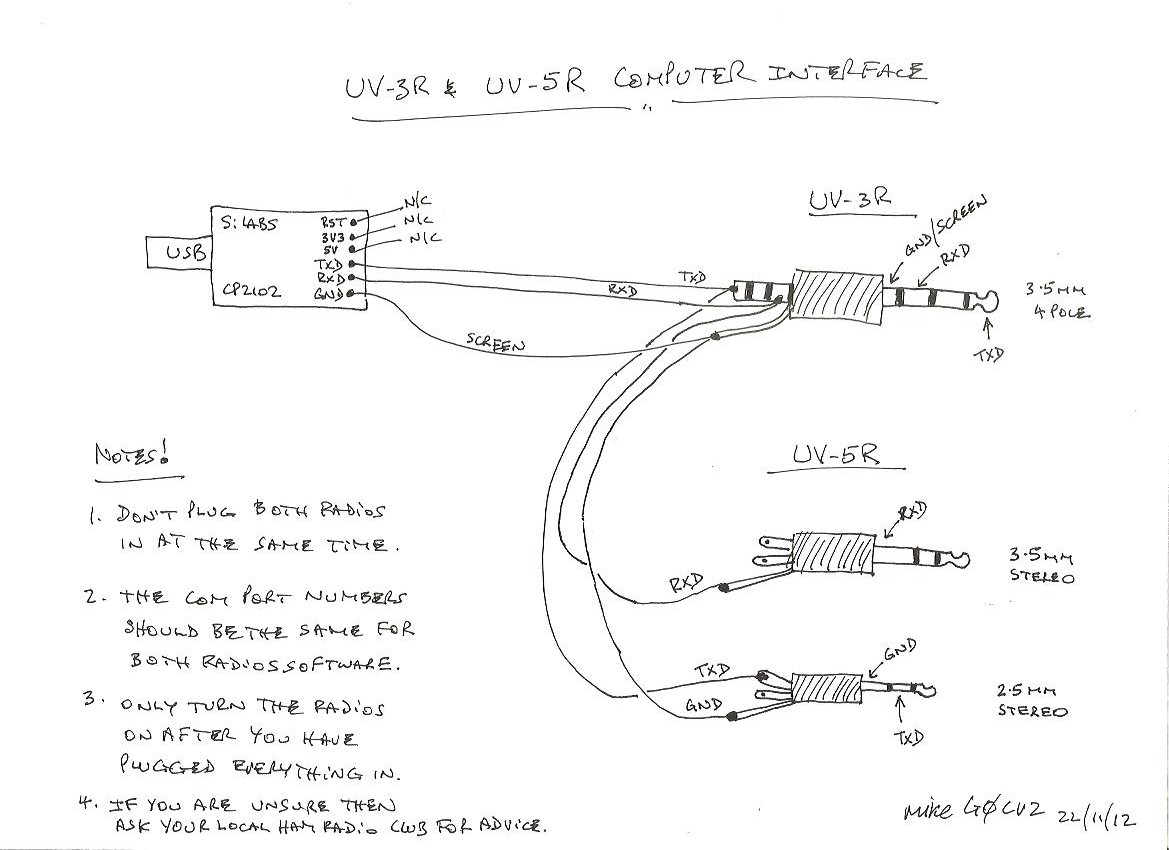 UV-3R & UV-5R COMPUTER INTERFACE
UV-3R
GND/SCREEN
RXD
3.5MM
4 POLE
TXD
Si LABS
USB
CP2102
RST
3V3
5V
TXD
RXD
GND
N/C
N/C
N/C
TXD
RXD
SCREEN
NOTES!
1. DON'T PLUG BOTH RADIOS
IN AT THE SAME TIME.
2. THE COM PORT NUMBERS
SHOULD BE THE SAME FOR
BOTH RADIOS SOFTWARE.
3. ONLY TURN THE RADIOS
ON AFTER YOU HAVE
PLUGGED EVERYTHING IN.
4. IF YOU ARE UNSURE THEN
ASK YOUR LOCAL HAM RADIO CLUB FOR ADVICE.
UV-5R
RXD
RXD
3.5MM
STEREO
TXD
GND
GND
TXD
2.5MM
STEREO
Mike GØCVZ 22/11/12